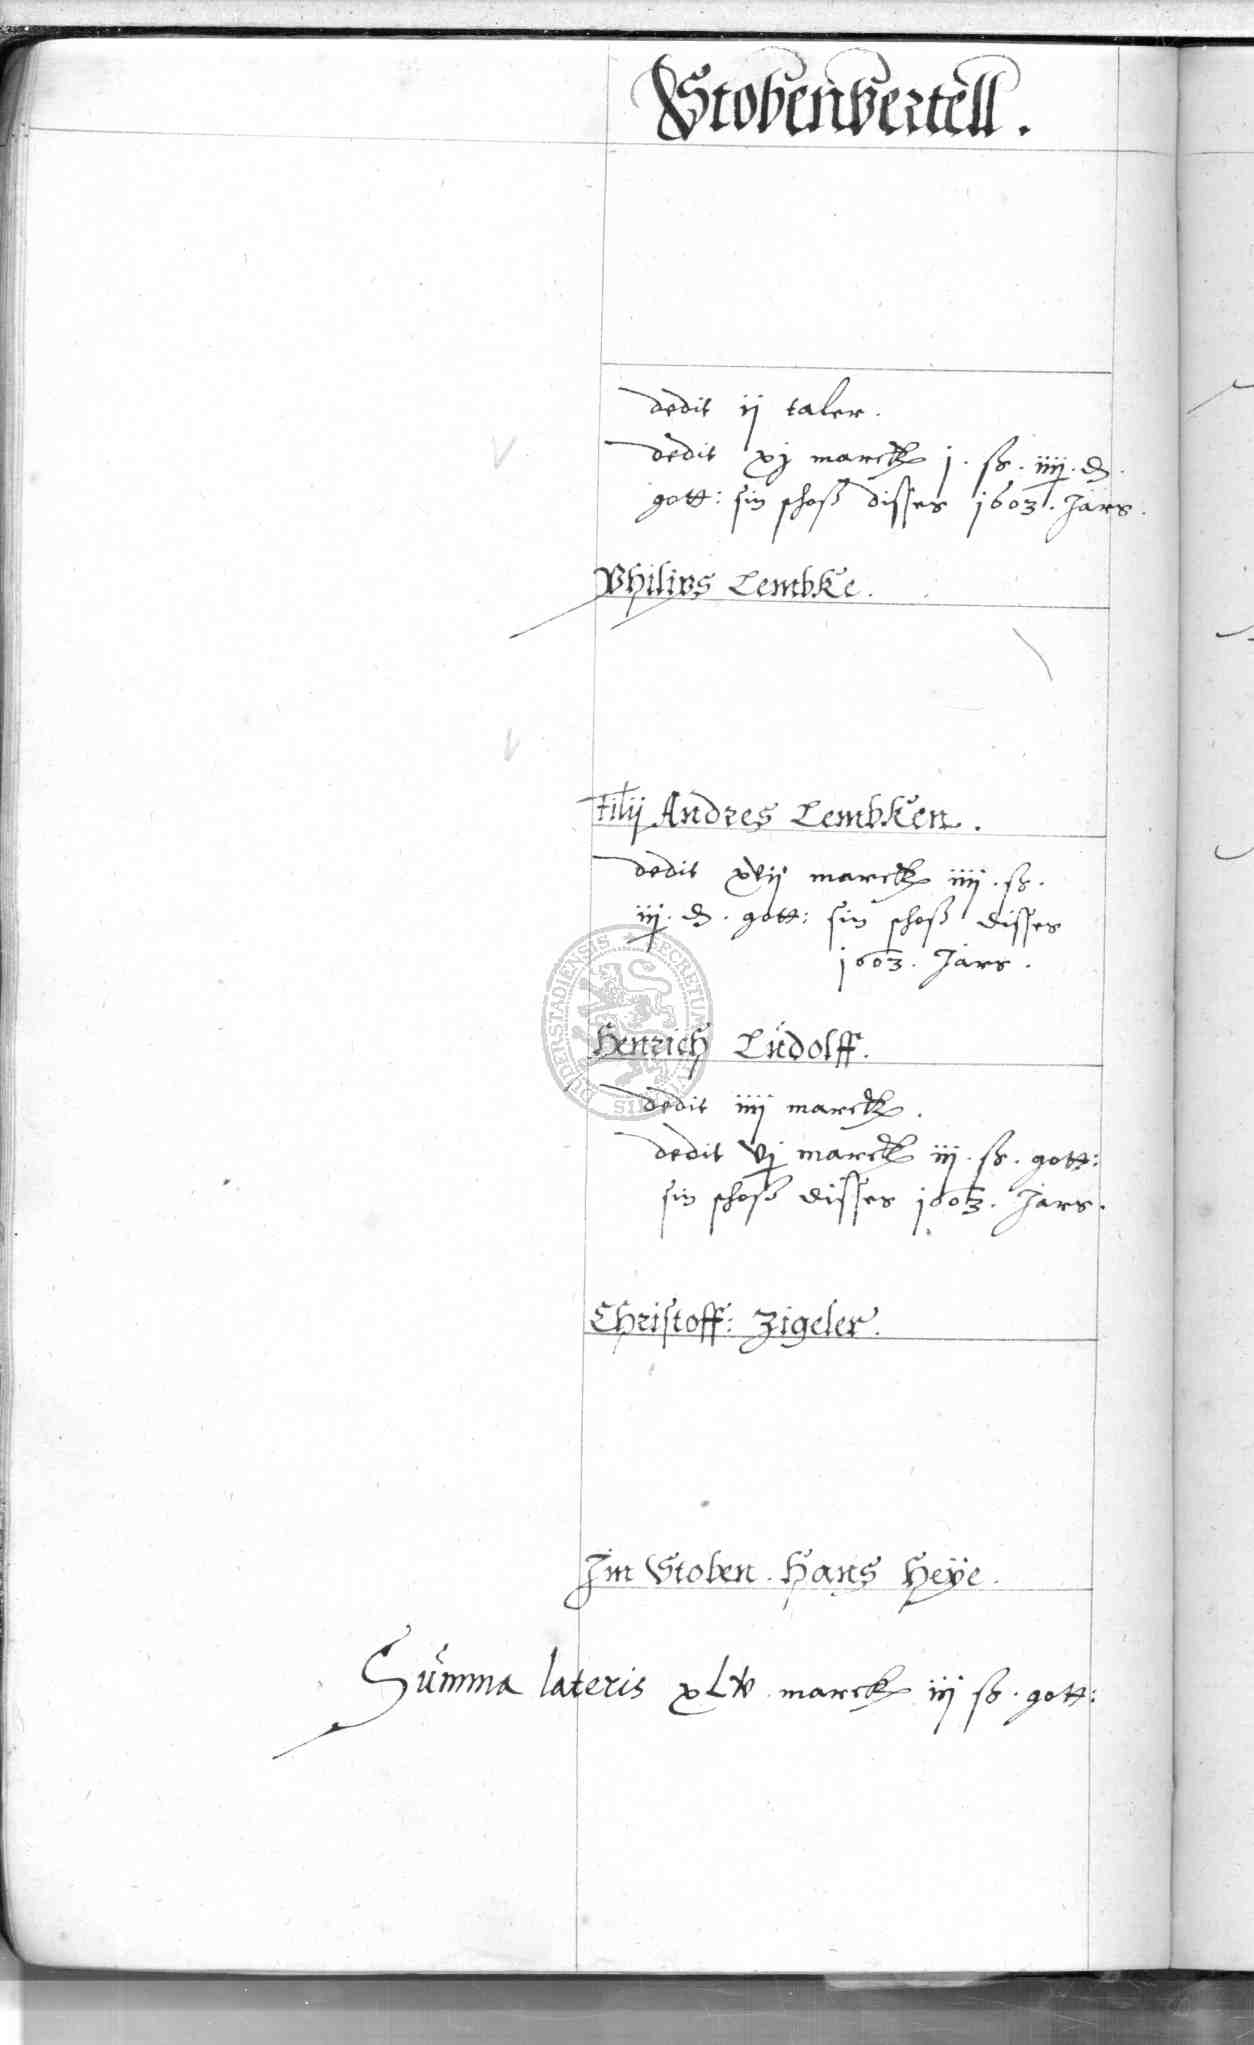 Stobenvertell.
dedit ij taler.
dedit xj marck j. ß. iiij. ₰.
gott: sin schoß disses 1603. Jars.
Philips Lembke.
filij Andres Lembken.
dedit xvij marck iiij. ß.
iij. ₰. gott: sin schoß disses
1603. Jars.
Henrich Lüdolff.
dedit iiij marck.
dedit vj marck iij. ß. gott:
sin schoß disses 1603. Jars.
Christoff: Zigeler.
Im Stoben. Hans Heÿe.
Summa lateris marck iij ß. gott:
DUDERSTADIENSIS SECRETUM CIVITATIS